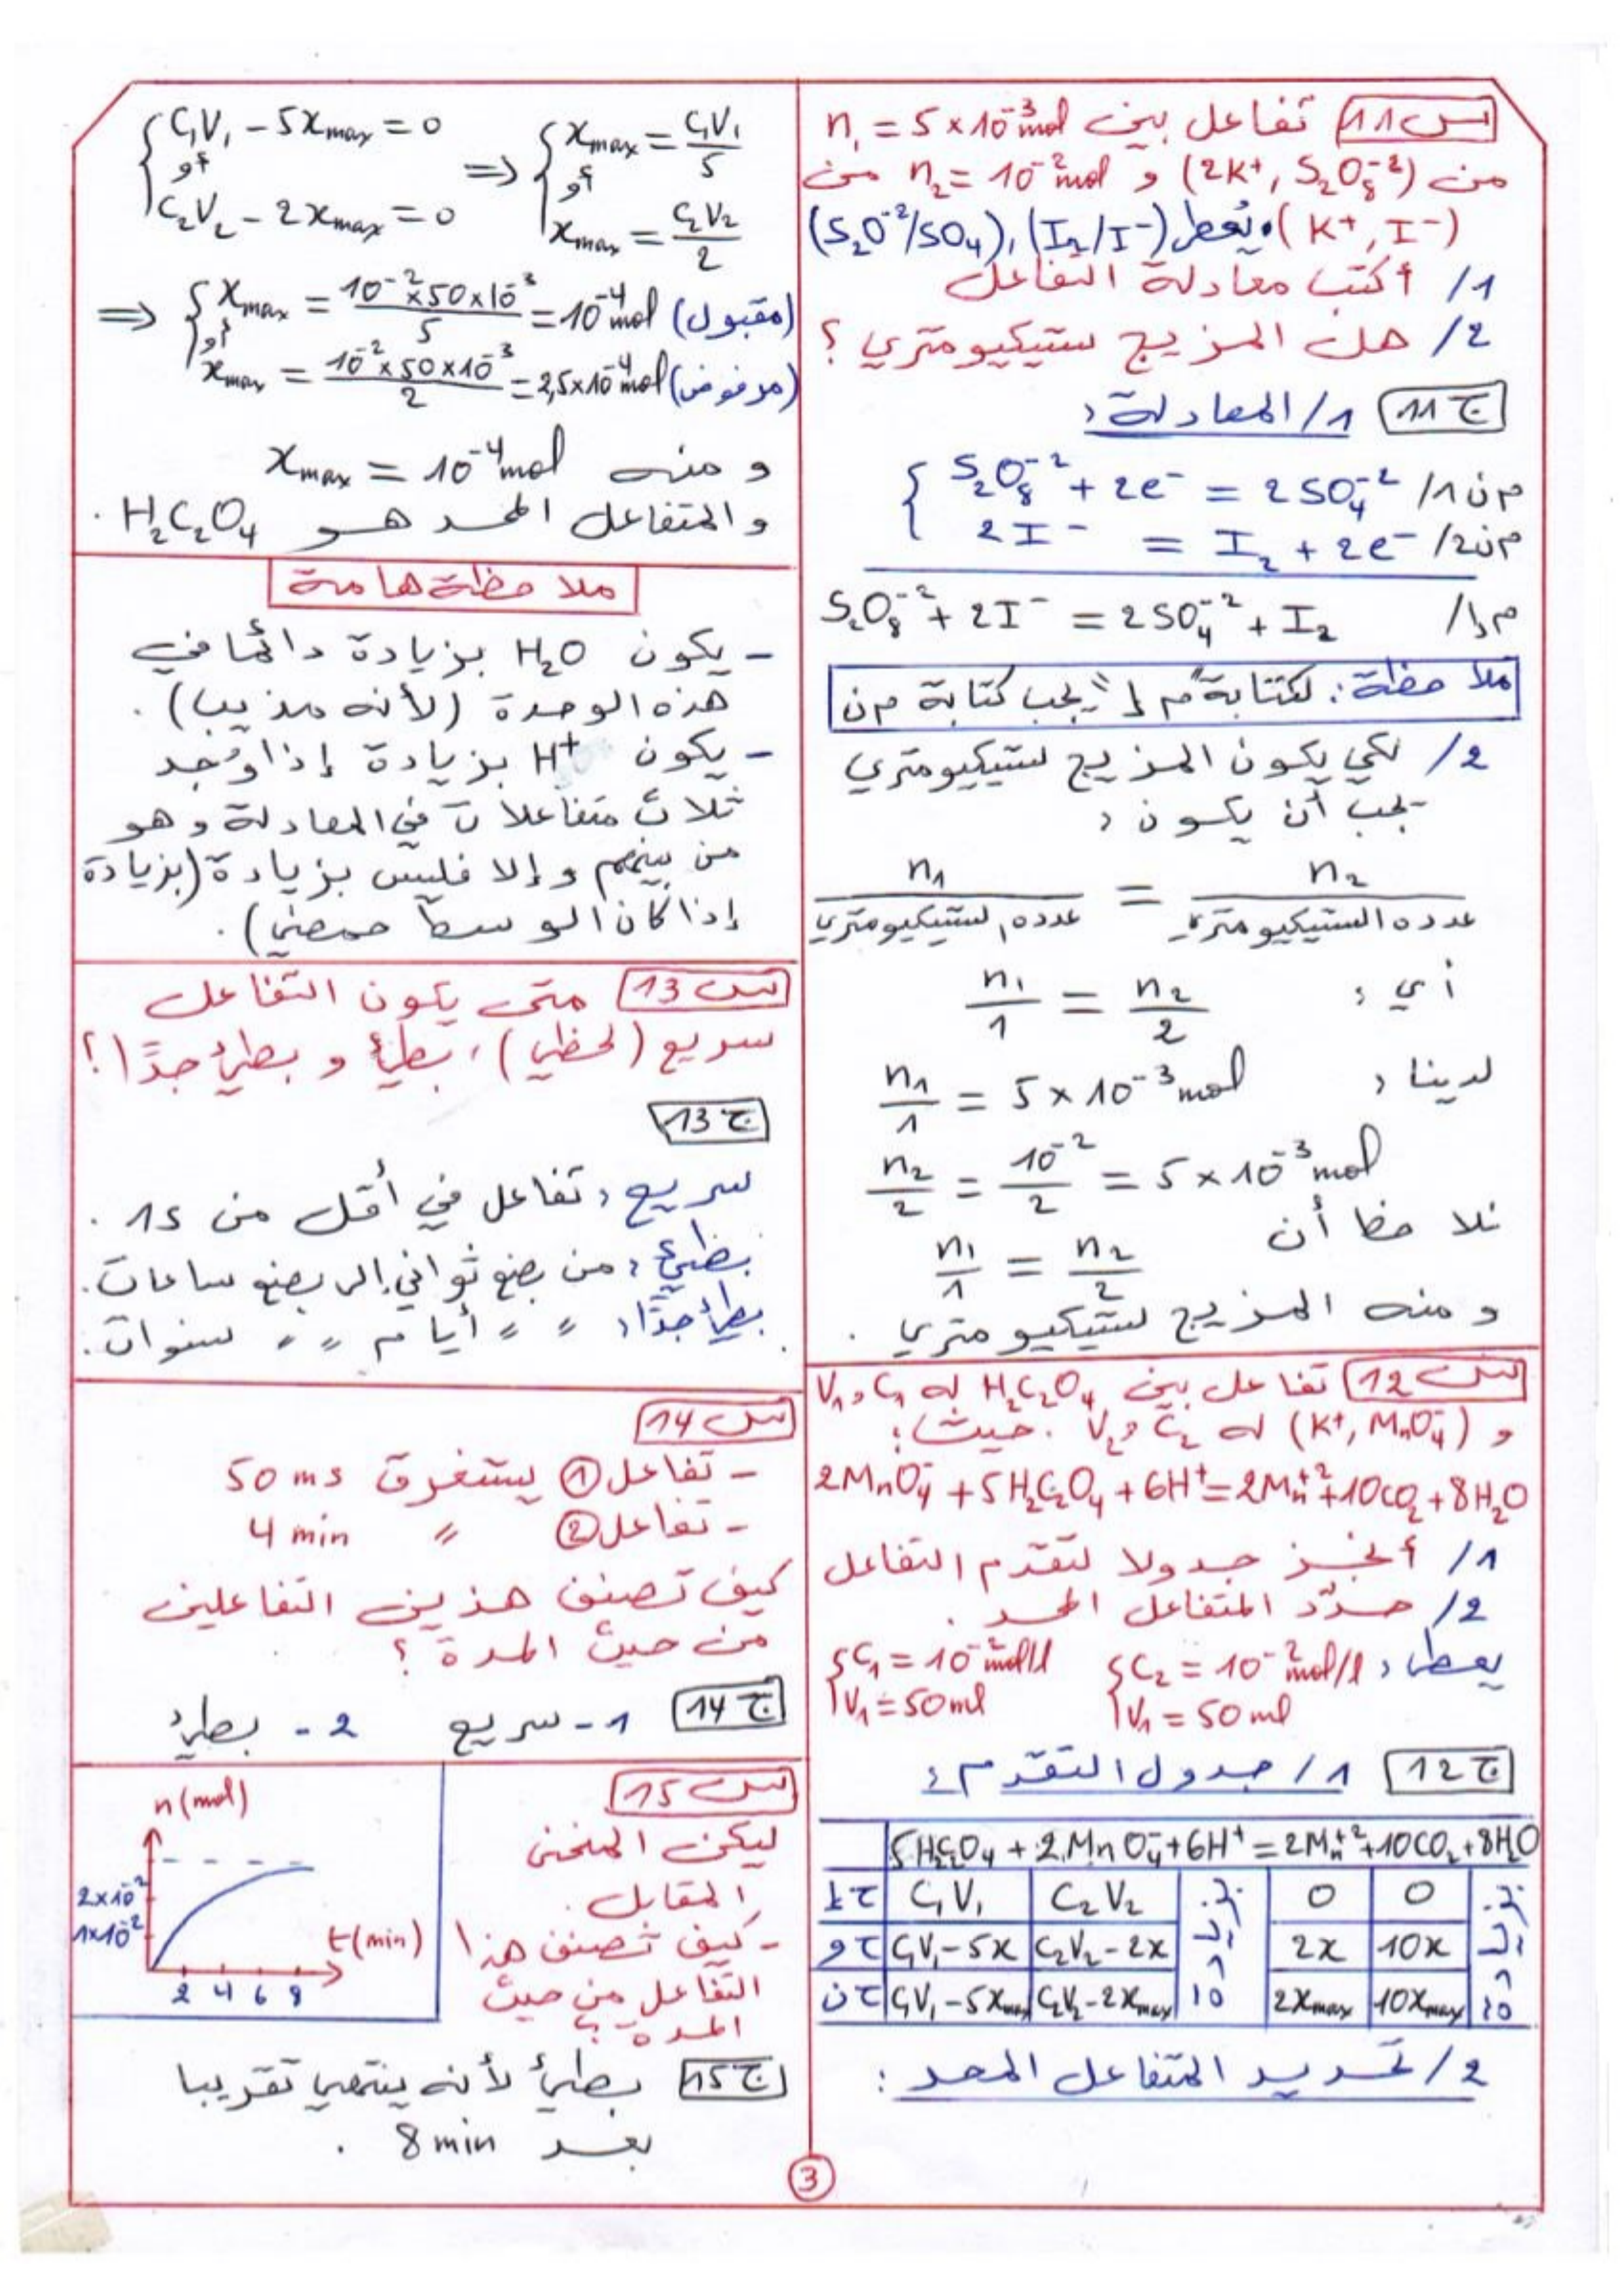 س11 تفاعل بين n₁ = 5×10⁻³mol
من (2K⁺, S₂O₈⁻²) و n₂ = 10⁻²mol من
(K⁺, I⁻) ويُعطى (I₂/I⁻), (S₂O⁻²/SO₄)
1/ أكتب معادلة التفاعل
2/ هل المزيج ستيكيومتري ؟
ج11 1/ المعادلة:
م ن1/ S₂O₈⁻² + 2e⁻ = 2SO₄⁻²
م ن2/ 2I⁻ = I₂ + 2e⁻
م إ/ S₂O₈⁻² + 2I⁻ = 2SO₄⁻² + I₂
ملاحظة: لكتابة "م إ" يجب كتابة م ن
2/ لكي يكون المزيج ستيكيومتري
يجب أن يكون:
n₁ / عدده الستيكيومتري = n₂ / عدده الستيكيومتري
أي: n₁/1 = n₂/2
لدينا: n₁/1 = 5×10⁻³mol
n₂/2 = 10⁻²/2 = 5×10⁻³mol
نلاحظ أن n₁/1 = n₂/2
و منه المزيج ستيكيومتري .
س12 تفاعل بين H₂C₂O₄ له C₁ و V₁
و (K⁺, MnO₄⁻) له C₂ و V₂ . حيث:
2MnO₄⁻ + 5H₂C₂O₄ + 6H⁺ = 2Mn⁺² + 10CO₂ + 8H₂O
1/ أنجز جدولا لتقدّم التفاعل
2/ حدّد المتفاعل المحد .
يعطى: {C₂ = 10⁻²mol/l {C₁ = 10⁻²mol/l
V₁ = 50ml V₁ = 50ml
ج12 1/ جدول التقدم:
5H₂C₂O₄ + 2MnO₄⁻ + 6H⁺ = 2Mn⁺² + 10CO₂ + 8H₂O
ح إ C₁V₁ C₂V₂ بز 0 0 بز
ح و C₁V₁-5x C₂V₂-2x يا 2x 10x يا
ح ن C₁V₁-5xmax C₂V₂-2xmax دة 2xmax 10xmax دة
2/ تحديد المتفاعل المحد :
{C₁V₁ - 5xmax = 0 ⇒ {xmax = C₁V₁/5
أو أو
C₂V₂ - 2xmax = 0 xmax = C₂V₂/2
⇒ {xmax = 10⁻²×50×10⁻³/5 = 10⁻⁴mol (مقبول)
أو
xmax = 10⁻²×50×10⁻³/2 = 2,5×10⁻⁴mol (مرفوض)
و منه xmax = 10⁻⁴mol
والمتفاعل المحد هو H₂C₂O₄ .
ملاحظة هامة
- يكون H₂O بزيادة دائما في
هذه الوحدة (لأنه مذيب) .
- يكون H⁺ بزيادة إذا وُجد
ثلاث متفاعلات في المعادلة و هو
من بينهم و إلا فليس بزيادة (بزيادة
إذا كان الوسط حمضي) .
س13 متى يكون التفاعل
سريع (لحظي) ، بطيئ و بطيئ جدًا ؟
ج13
سريع: تفاعل في أقل من 1s .
بطيئ: من بضع ثواني إلى بضع ساعات .
بطيئ جدًا: " " أيام " " سنوات .
س14
- تفاعل ① يستغرق 50 ms
- تفاعل ② " 4 min
كيف تصنف هذين التفاعلين
من حيث المدة ؟
ج14 1- سريع 2- بطيئ
س15
ليكن المنحنى
المقابل .
- كيف تصنف هذا
التفاعل من حيث
المدة ؟
n(mol)
2×10⁻²
1×10⁻²
t(min)
2 4 6 8
ج15 بطيئ لأنه ينتهي تقريبا
بعد 8 min .
3